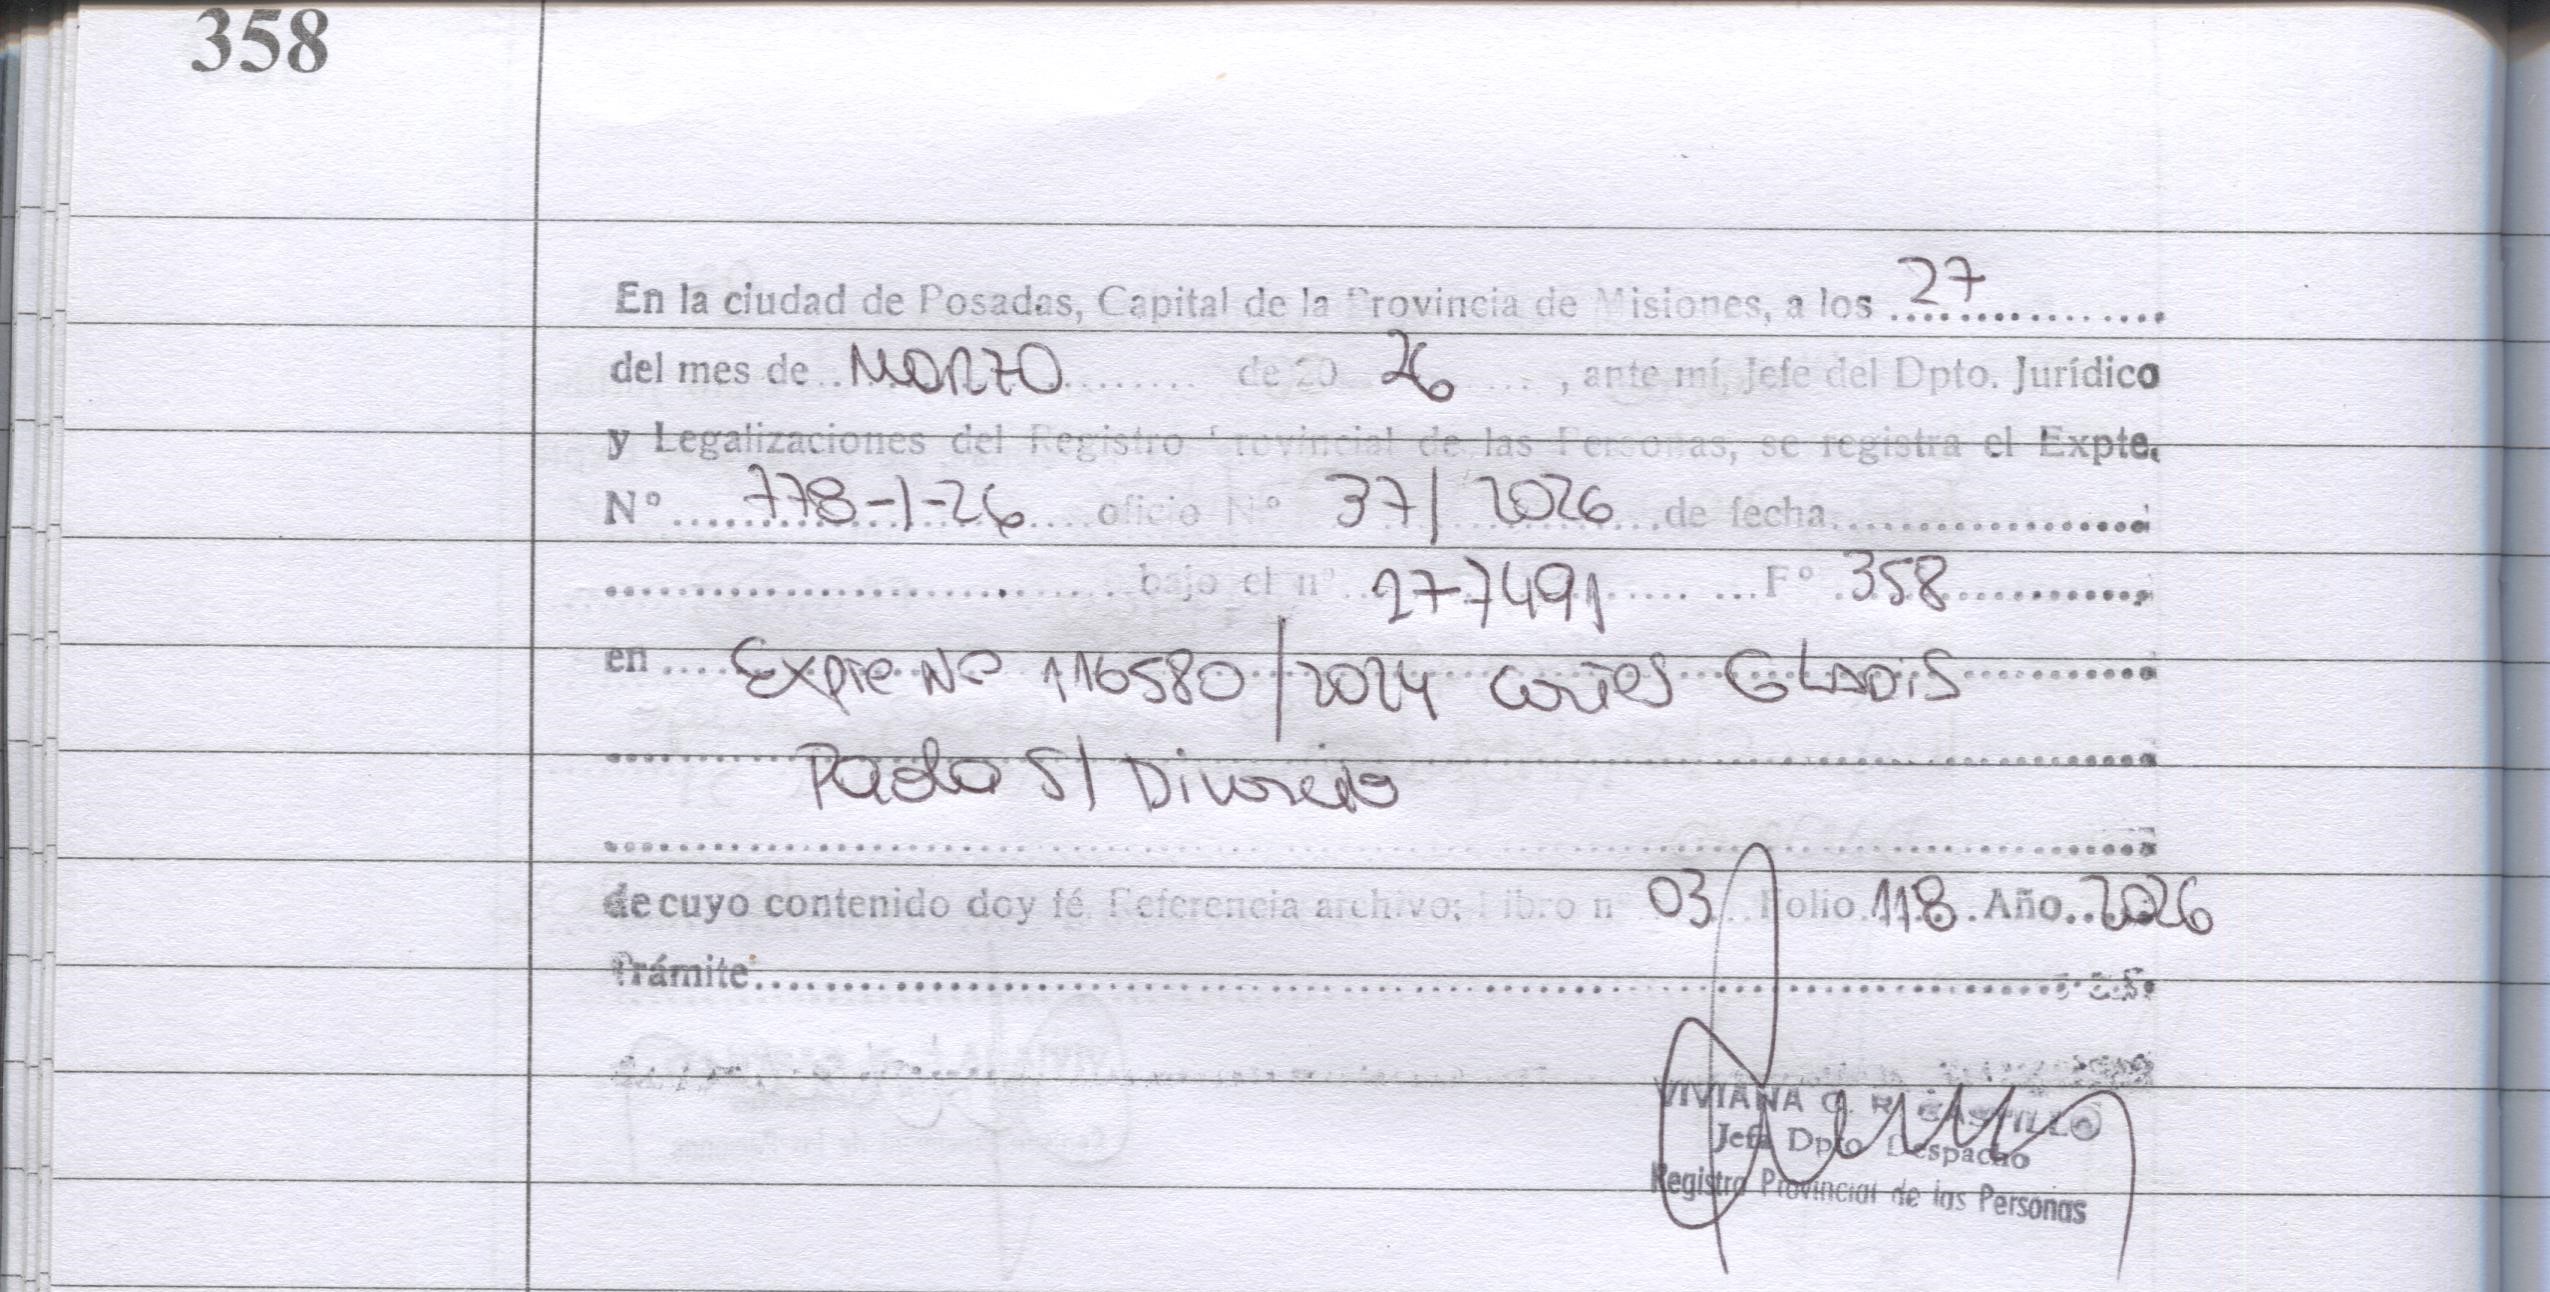 358
En la ciudad de Posadas, Capital de la Provincia de Misiones, a los 27
del mes de Marzo de 20 26, ante mí, Jefe del Dpto. Jurídico
y Legalizaciones del Registro Provincial de las Personas, se registra el Expte.
Nº 778-1-26 oficio Nº 37/2026 de fecha
bajo el nº 277491 Fº 358
en Expte Nº 116580/2024 Cortes GLADIS
Paola S/ Divorcio
de cuyo contenido doy fé. Referencia archivo: Libro nº 03 Folio 118 Año 2026
Trámite
VIVIANA C. R. CASTILLO
Jefa Dpto Despacho
Registro Provincial de las Personas